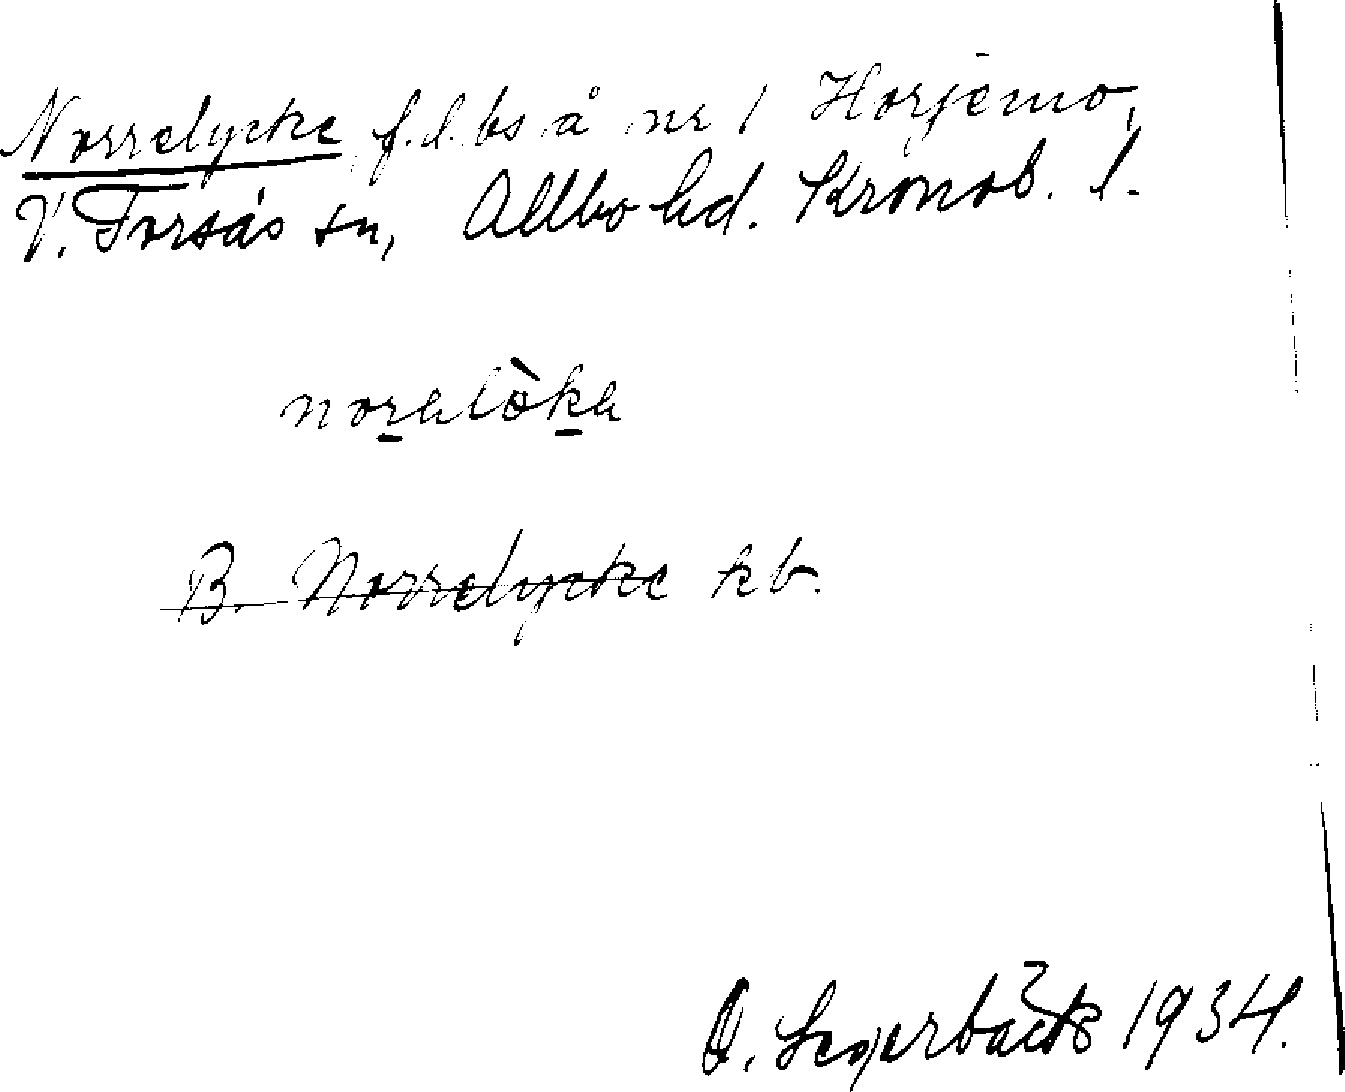 Norrelycke f.d. bs å nr 1 Horjemo,
V. Torsås sn, Allbo hd. Kronob. l.
noralòka
B. Norrelycke kb.
O. Segerbäck 1934.